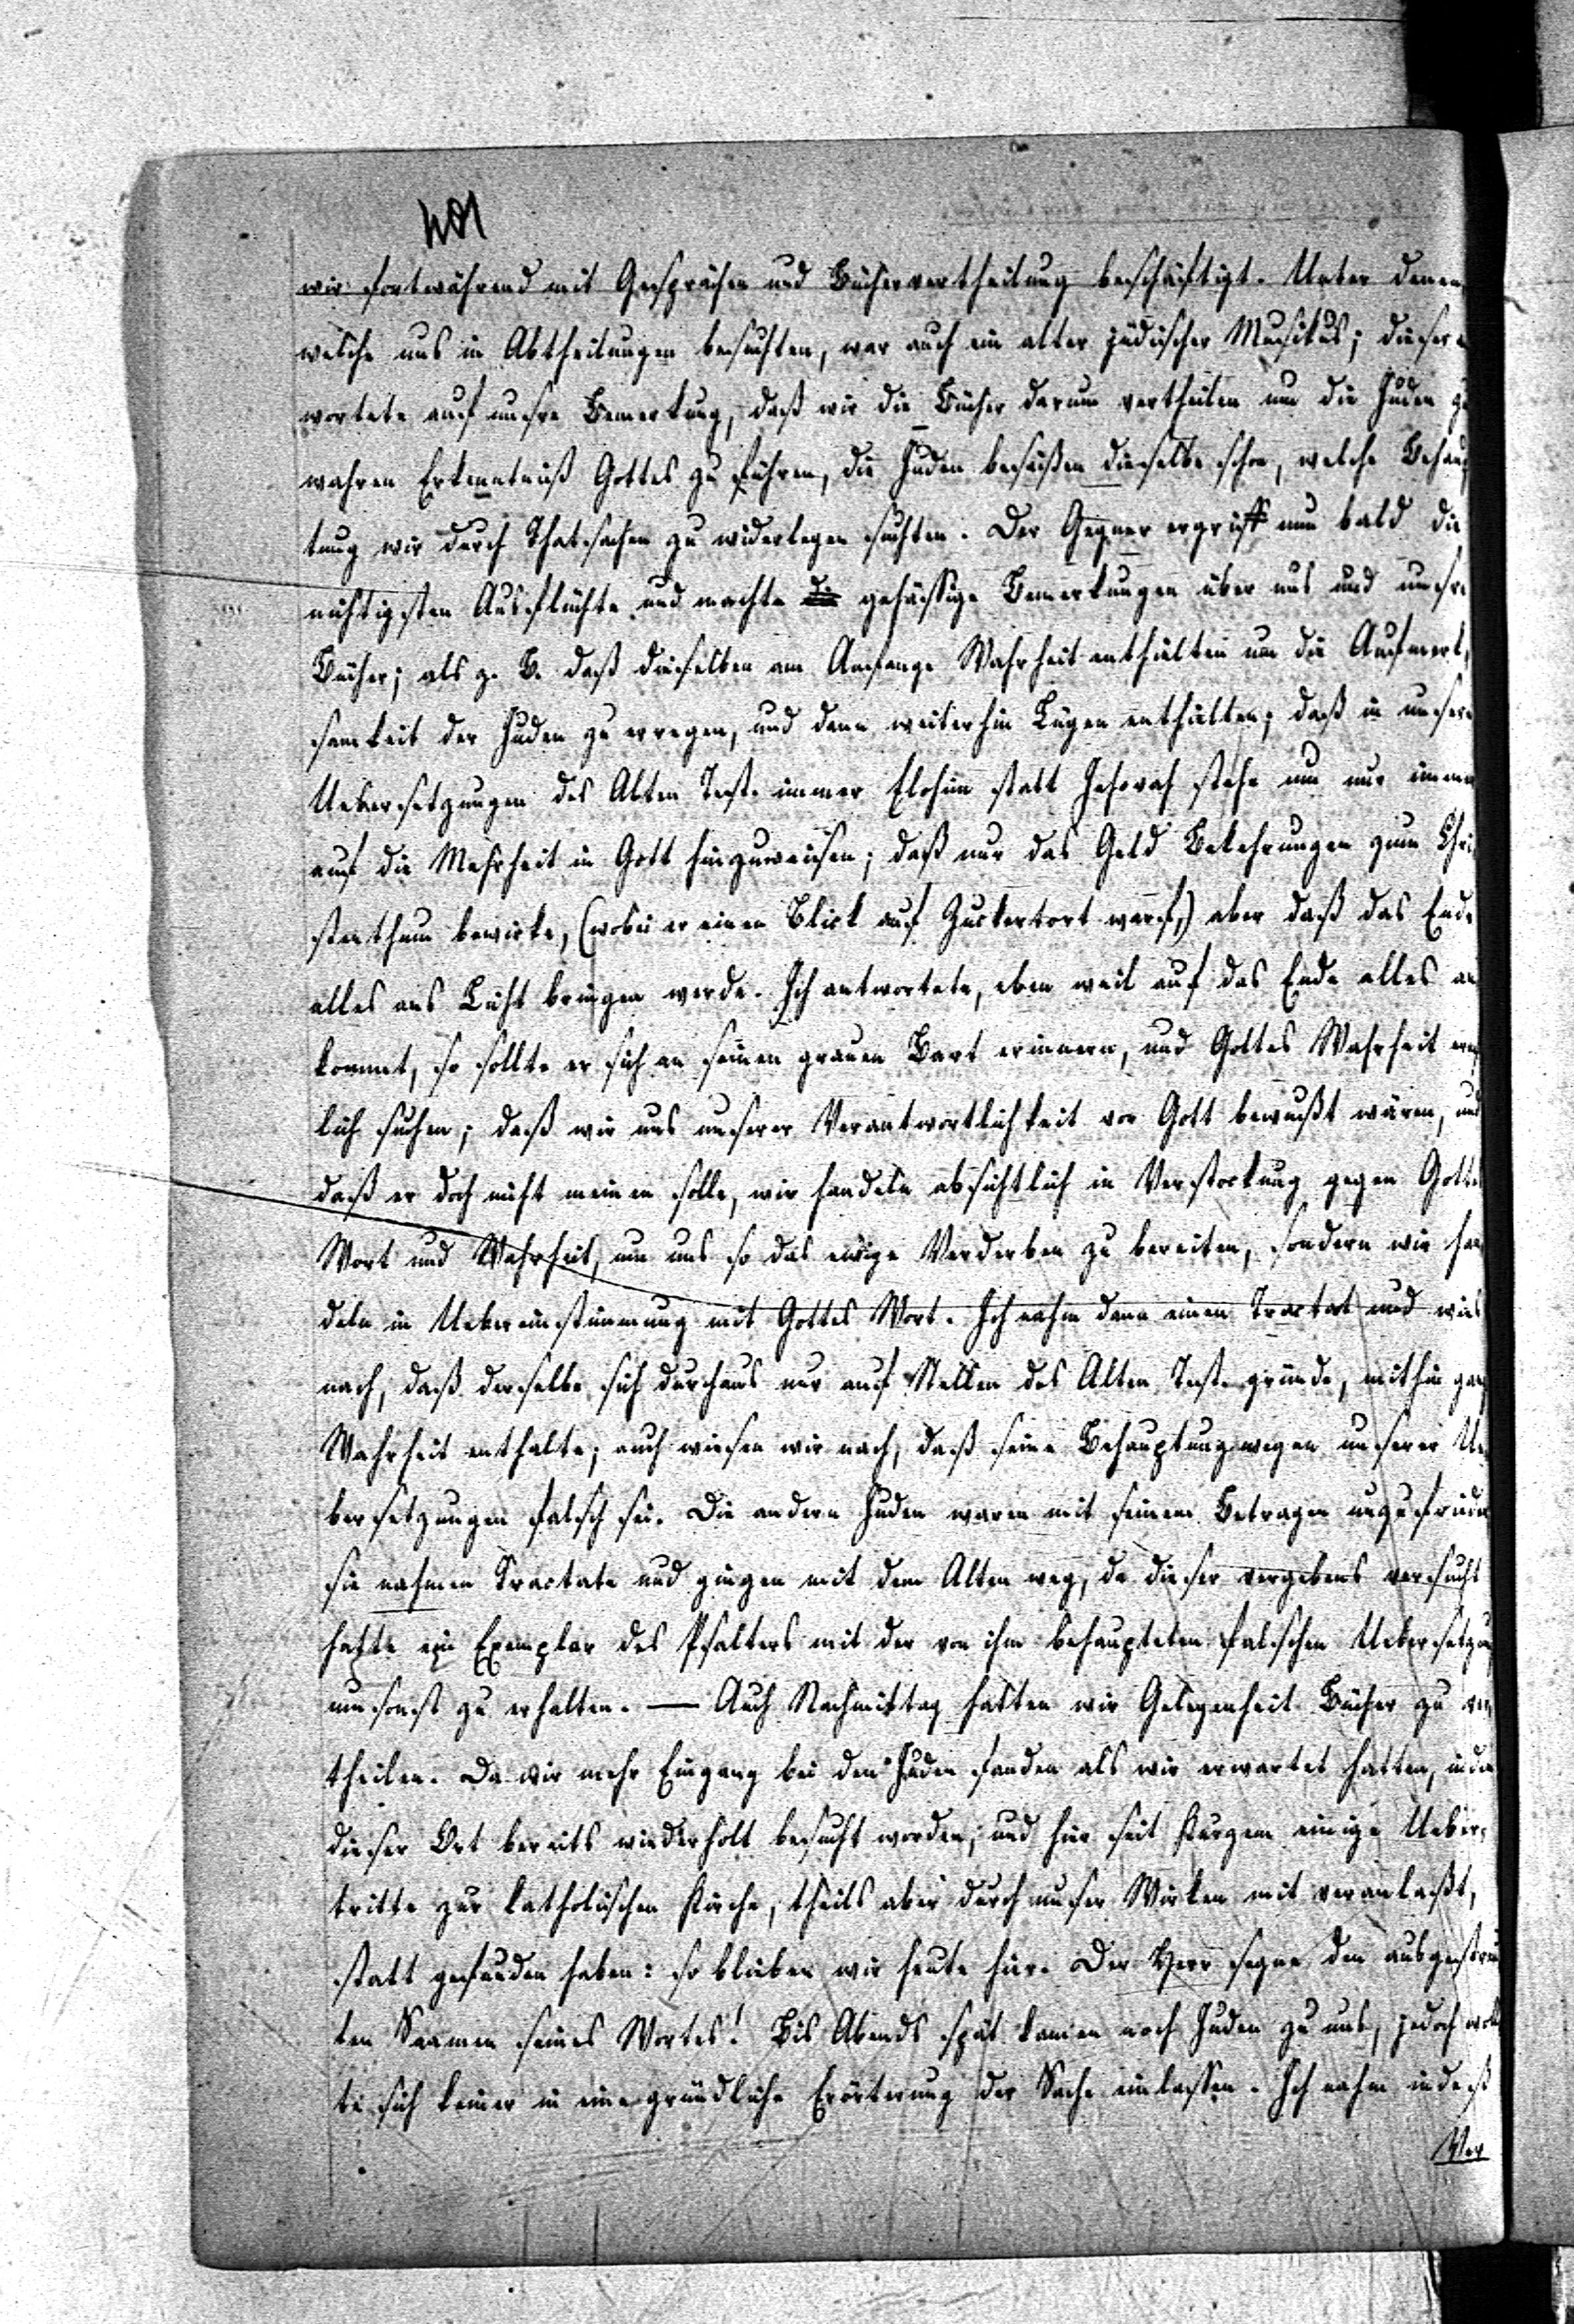 401
wir fortwährend mit Gesprächen und Büchervertheilung beschäftigt. Unter denen
welche uns in Abtheilungen besuchten, war auch ein alter jüdischer Musikus; dieser
wortete auf unsre Bemerkung, daß wir die Bücher darum vertheilen um die Juden
wahren Erkenntniß Gottes zu führen, die Juden besäßen dieselbe schon, welche Behaup
tung wir durch Thatsachen zu widerlegen suchten. Der Gegner ergriff nun bald die
nichtigsten Ausflüchte und machte die gehässige Bemerkungen über uns und unsre
Bücher; als z. B. daß dieselben am Anfange Wahrheit enthielten um die Aufmerk,
samkeit der Juden zu erregen, und dann weiterhin Lügen enthielten; daß in unsern
Uebersetzungen des Alten Test. immer Elohim statt Jehovah stehe um nur immer
auf die Mehrheit in Gott hinzuweisen; daß nur das Geld Bekehrungen zum Chri,
stenthum bewirke, (wobei er einen Blick auf Zuckertort warf,) aber daß das Ende
alles ans Licht bringen werde. Ich antwortete, eben weil auf das Ende alles an
kommt, so sollte er sich an seinen grauen Bart erinnern, und Gottes Wahrheit
lich suchen; daß wir uns unserer Verantwortlichkeit vor Gott bewußt wären, und
daß er doch nicht meinen solle, wir handeln absichtlich in Verstockung gegen Gottes
Wort und Wahrheit, um uns so das ewige Verderben zu bereiten, sondern wir han
deln in Uebereinstimmung mit Gottes Wort. Ich nahm dann einen Tractat und wies
nach, daß derselbe sich durchaus nur auf Stellen des Alten Test. gründe, mithin ganz
Wahrheit enthalte; auch wiesen wir nach, daß seine Behauptung wegen unserer Ue
bersetzungen falsch sei. Die andern Juden waren mit seinem Betragen unzufrieden
sie nahmen Tractate und gingen mit dem Alten weg, da dieser vergebens versucht
hatte ein Exemplar des Psalters mit der von ihm behaupteten falschen Uebersetzung
umsonst zu erhalten. — Auch Nachmittag hatten wir Gelegenheit Bücher zu ver,
theilen. Da wir mehr Eingang bei den Juden fanden als wir erwartet hatten, indem
dieser Ort bereits wiederholt besucht worden, und hier seit kurzem einige Ueber,
tritte zur katholischen Kirche, theils aber durch unser Wirken mit veranlaßt,
statt gefunden haben: so blieben wir heute hier. Der Herr segne den ausgestreu
ten Saamen seines Wortes! Bis Abends spät kamen noch Juden zu uns, jedoch woll
te sich keiner in eine gründliche Erörterung der Sache einlassen. Ich nahm indeß
Ver